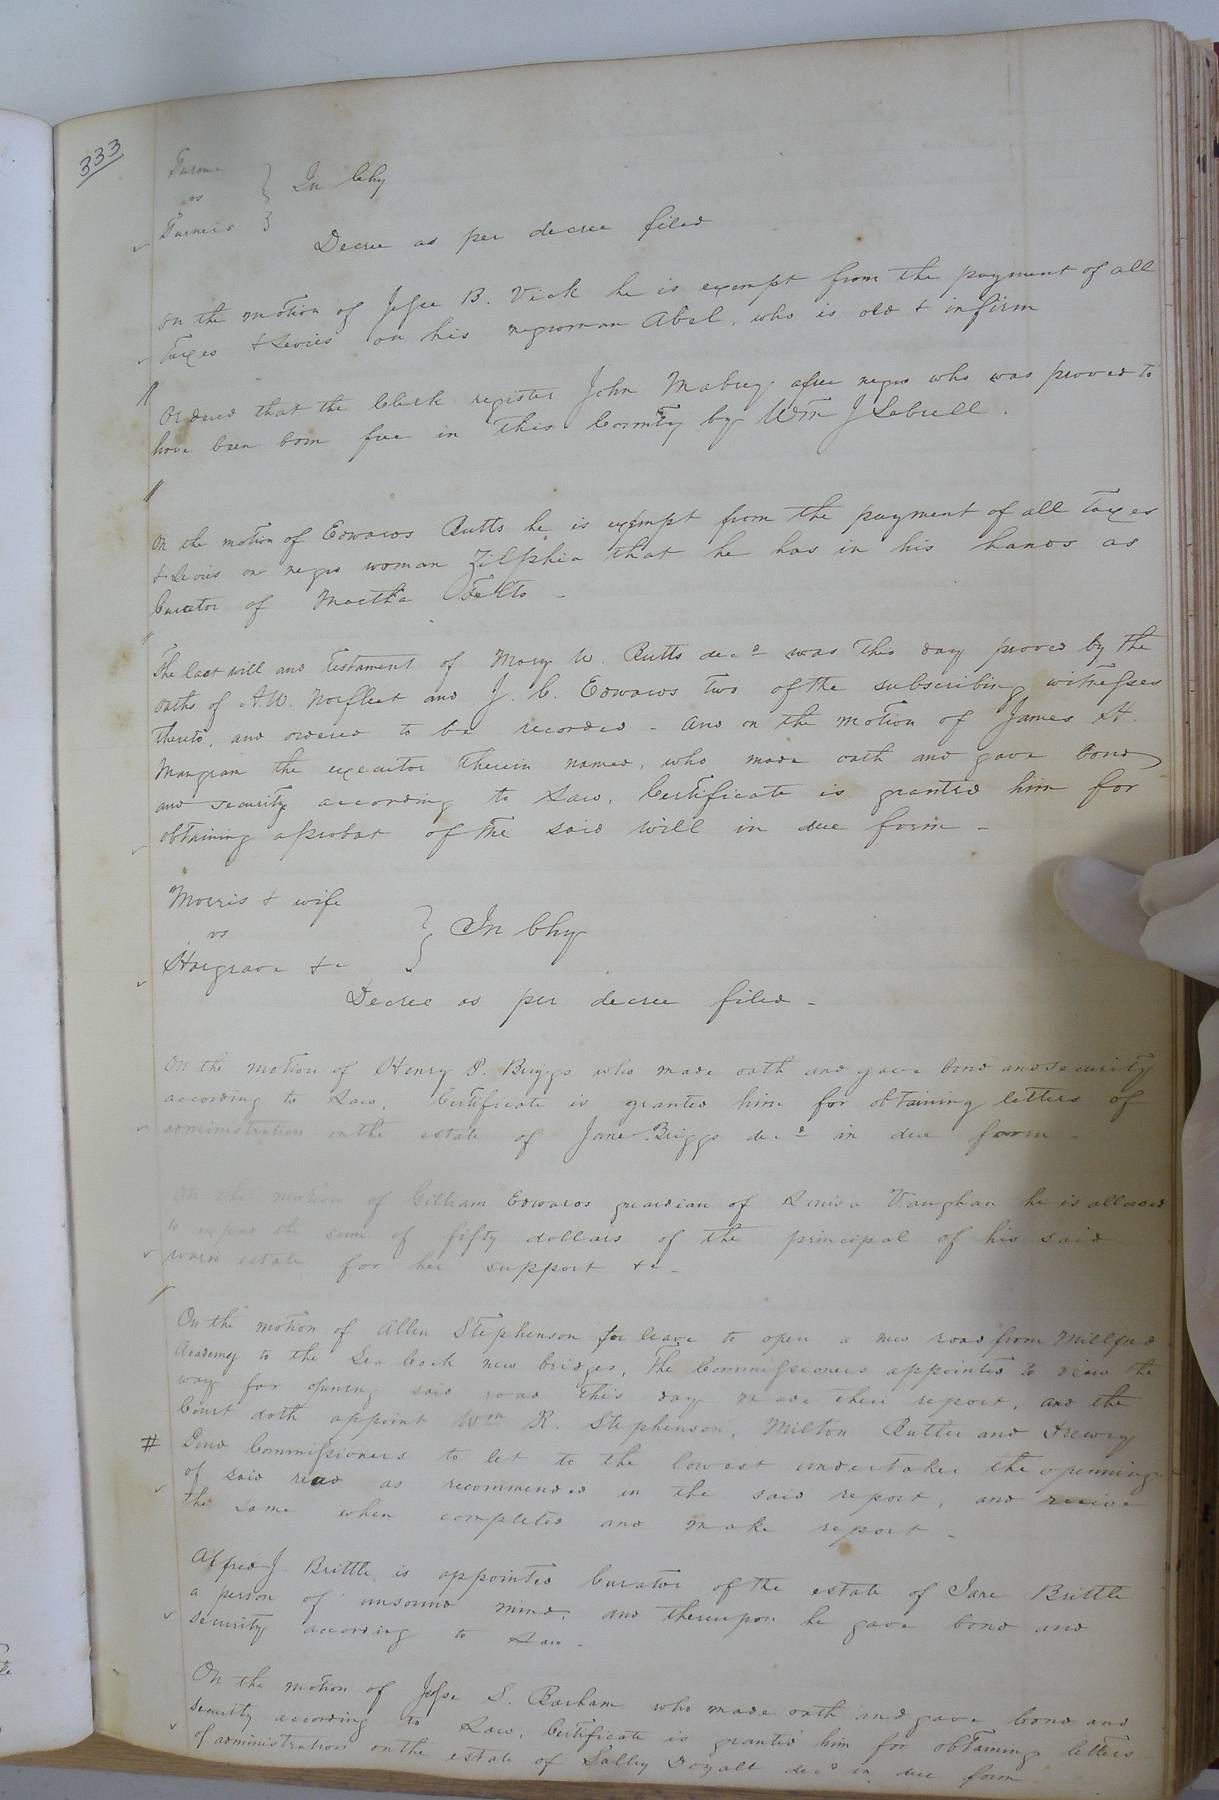 333
Turner
vs
Turners
} In Chy
Decree as per decree filed
On the motion of Jesse B. Vick he is exempt from the payment of all
taxes & Levies on his negroman Abel, who is old & infirm
Ordered that the Clerk register John Mabry a free negro who was proved to
have been born free in this County by Wm J Sebrell.
On the motion of Edwards Butts he is exempt from the payment of all Taxes
& Levies on negro woman Zilphia that he has in his hands as
Curator of Martha Felts -
The last will and testament of Mary W. Butts decd was this day proved by the
oaths of A.W. Norfleet and J. C. Edwards two of the subscribing witnesses
thereto, and ordered to be recorded - and on the motion of James H.
Mangram the executor therein named, who made oath and gave bond
and security according to Law, Certificate is granted him for
obtaining a probat of the said will in due form -
Morris & wife
vs
Hargrave &c
} In Chy
Decree as per decree filed -
On the motion of Henry P. Briggs who made oath and gave bond and security
according to Law, Certificate is granted him for obtaining letters of
administration on the estate of Jane Briggs decd in due form -
On the motion of Gilliam Edwards guardian of Louisa Vaughan he is allowed
to expend the sum of fifty dollars of the principal of his said
wards estate for her support &c -
On the motion of Allen Stephenson for leave to open a new road from Millfied
Academy to the Sea Cock new bridges, The Commissioners appointed to view the
way for opening said road this day made their report, and the
Court doth appoint Wm R. Stephenson, Milton Butler and Drewry
# Pond Commissioners to let to the lowest undertaker the openning
of said road as recommended in the said report, and recive
the same when completed and make report -
Alfred J. Brittle is appointed Curator of the estate of Jane Brittle
a person of unsound mind, and thereupon he gave bond and
security according to Law -
On the motion of Jesse S. Barham who made oath and gave bond and
security according to Law, Certificate is granted him for obtaining letters
of administration on the estate of Salley Doyall decd in due form